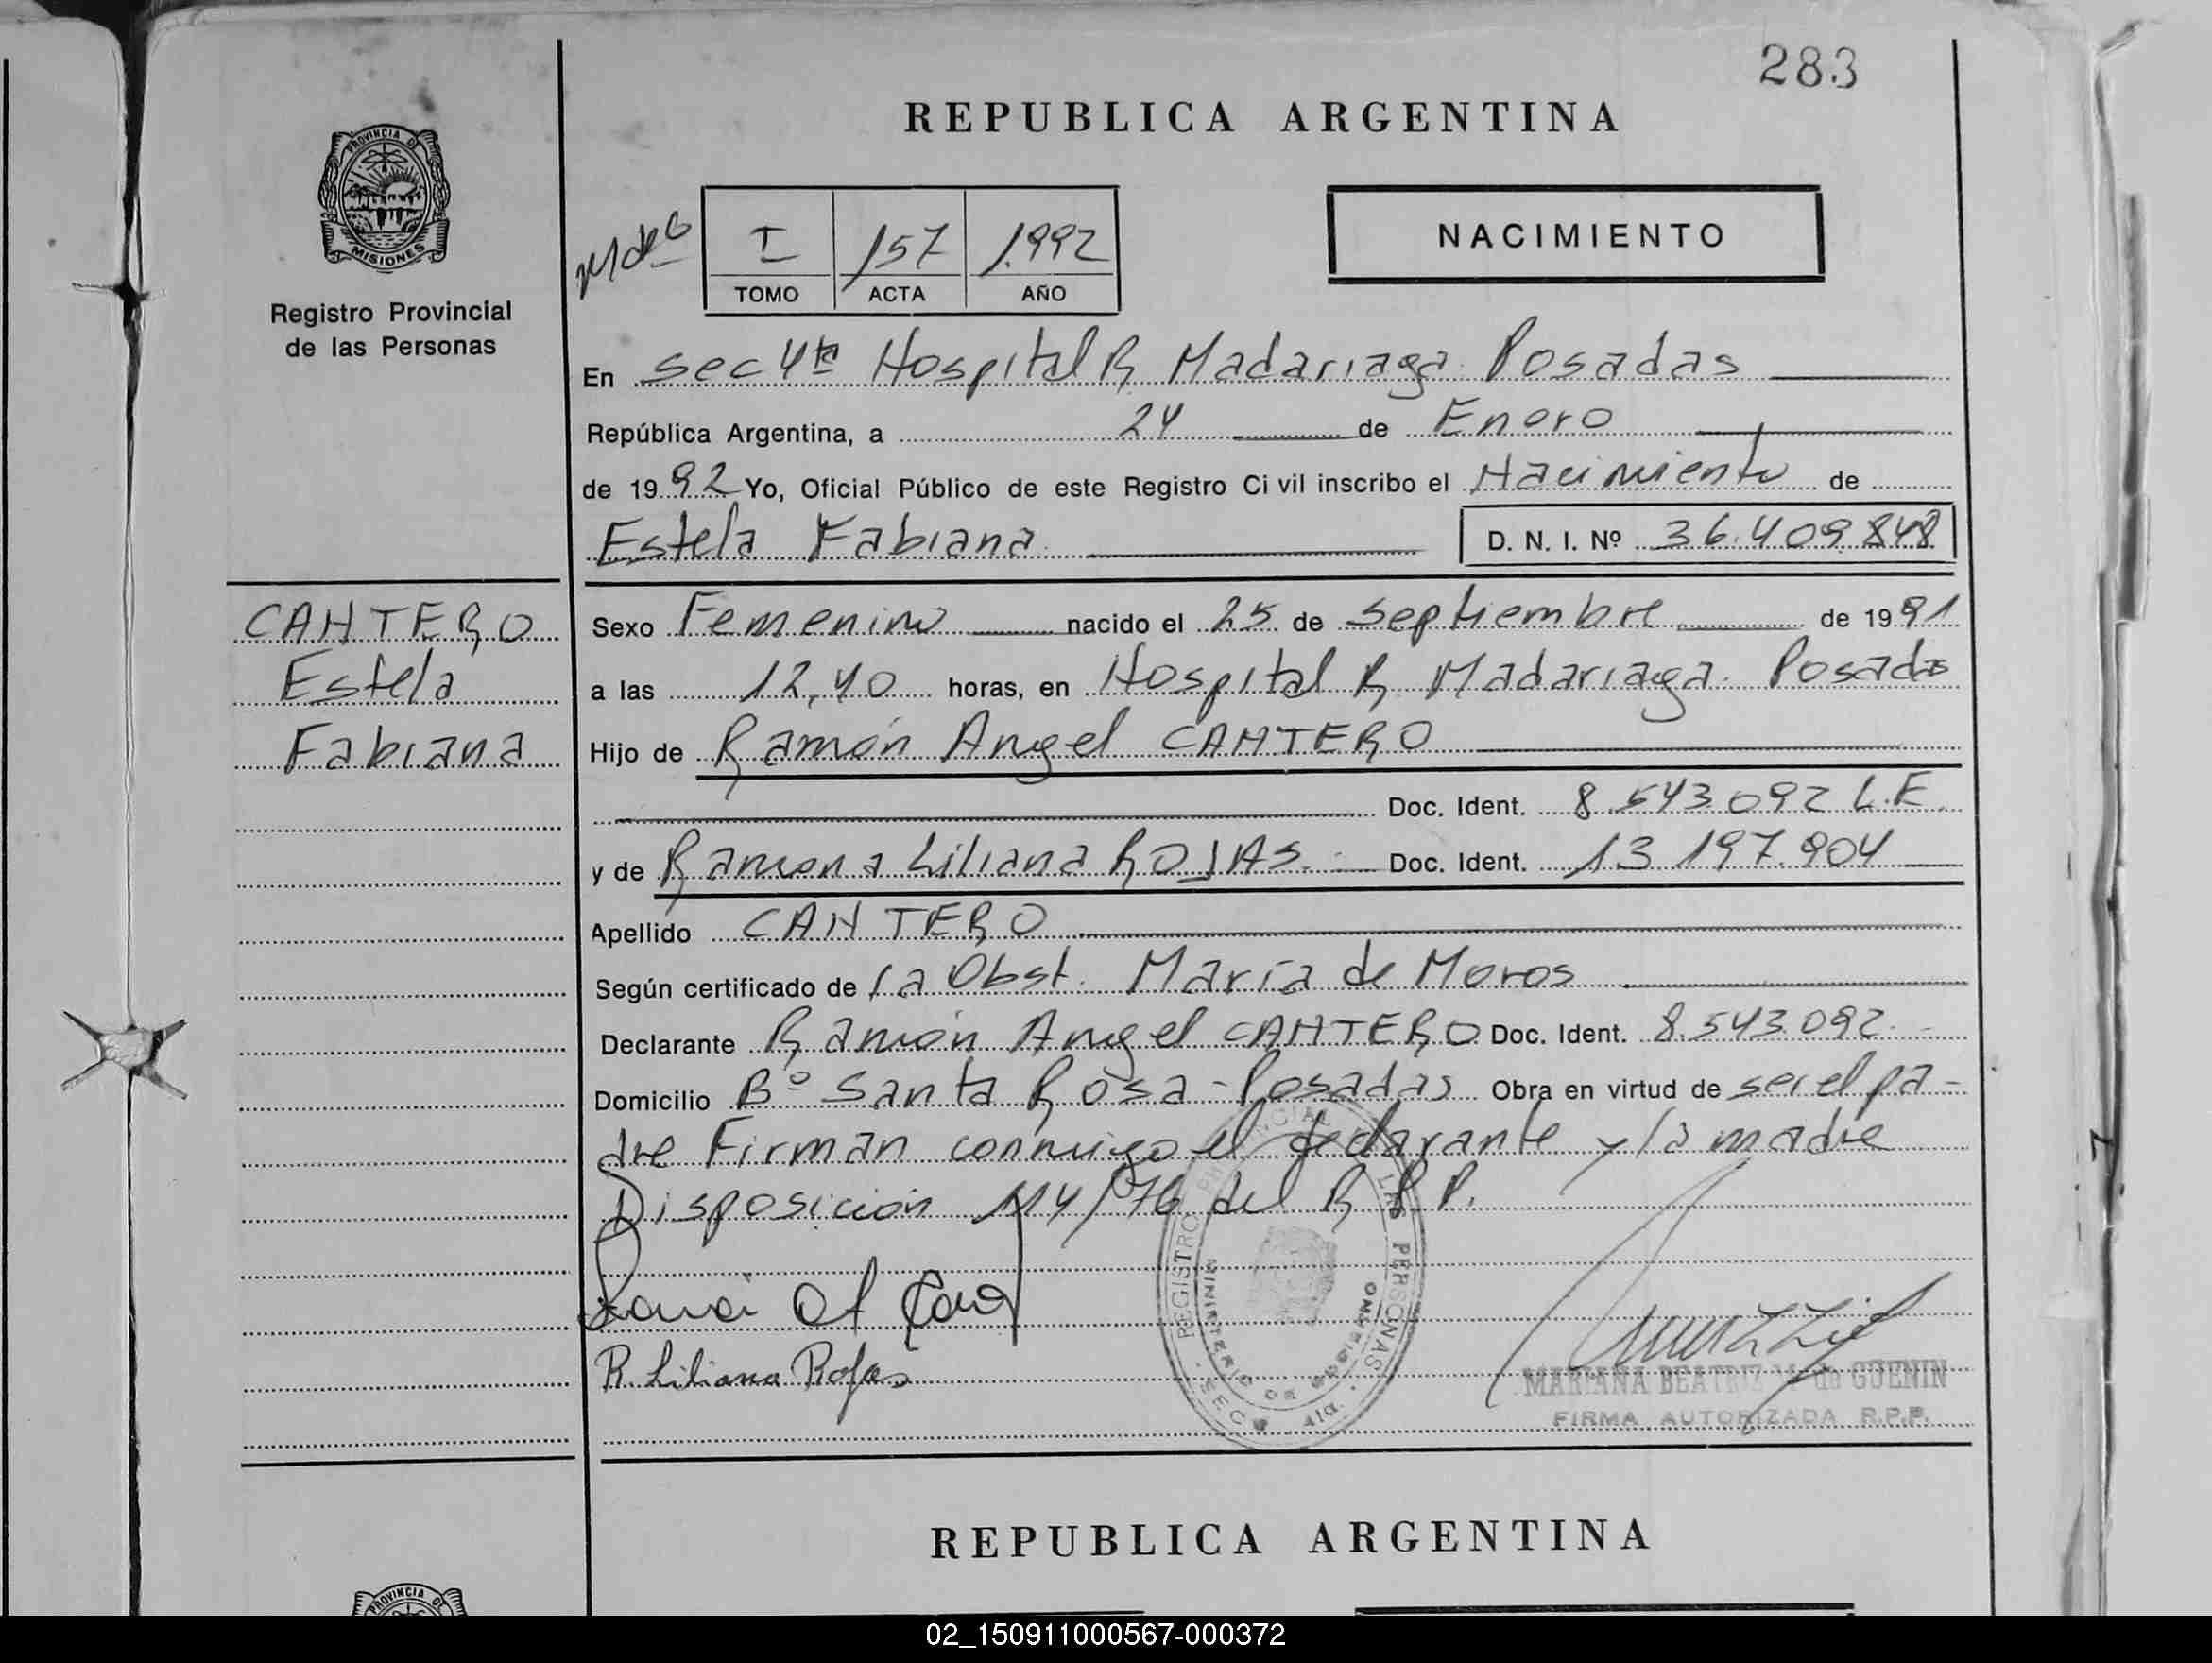 283
REPUBLICA ARGENTINA
PROVINCIA DE
MISIONES
Registro Provincial
de las Personas
I 157 1.992
TOMO ACTA AÑO
NACIMIENTO
En sec 4ta Hospital R Madariaga. Posadas
República Argentina, a 24 de Enero
de 1992 Yo, Oficial Público de este Registro Civil inscribo el Nacimiento de
Estela Fabiana D. N. I. Nº 36.409.848
CANTERO
Estela
Fabiana
Sexo Femenino nacido el 25 de septiembre de 1991
a las 12,40 horas, en Hospital R Madariaga. Posadas
Hijo de Ramón Angel CANTERO
Doc. Ident. 8.543.092 L.E.
y de Ramona Liliana ROJAS.- Doc. Ident. 13.197.904
Apellido CANTERO
Según certificado de la Obst. María de Moros
Declarante Ramón Angel CANTERO Doc. Ident. 8.543.092.-
Domicilio Bº Santa Rosa - Posadas Obra en virtud de ser el pa-
dre Firman conmigo el declarante y la madre
Disposición 114/76 del R.P.P.
R. Liliana Rojas
REGISTRO PROVINCIAL DE LAS PERSONAS
MINISTERIO DE GOBIERNO
SEC. 4ta.
MARIANA BEATRIZ de GUENIN
FIRMA AUTORIZADA R.P.P.
REPUBLICA ARGENTINA
PROVINCIA DE
02_150911000567-000372